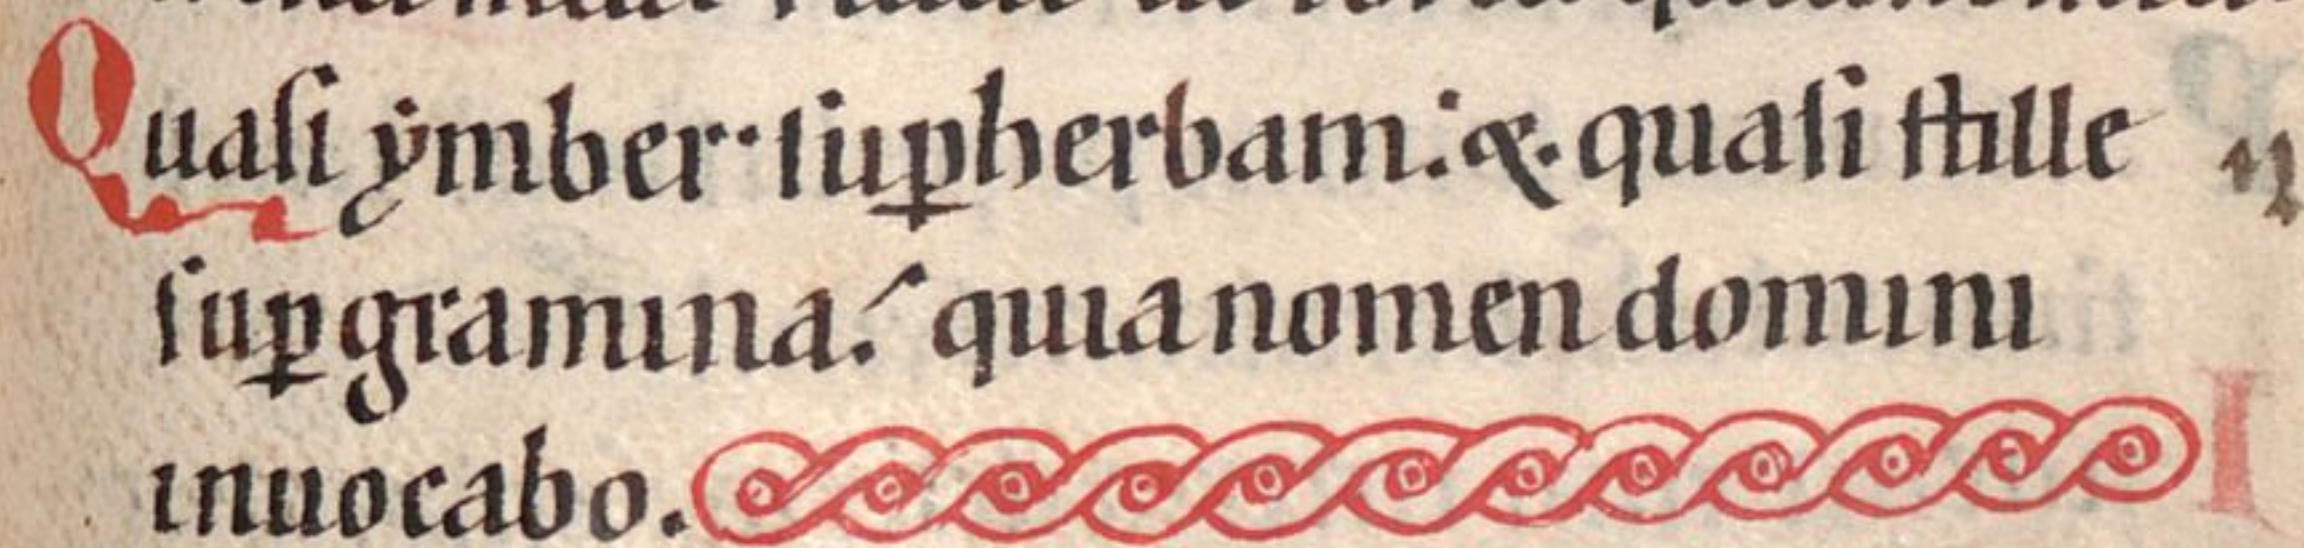 Quaſi ẏmber· ſuꝑ herbam. & quaſi ſtille
ſuꝑ gramina: quia nomen domini
inuocabo.